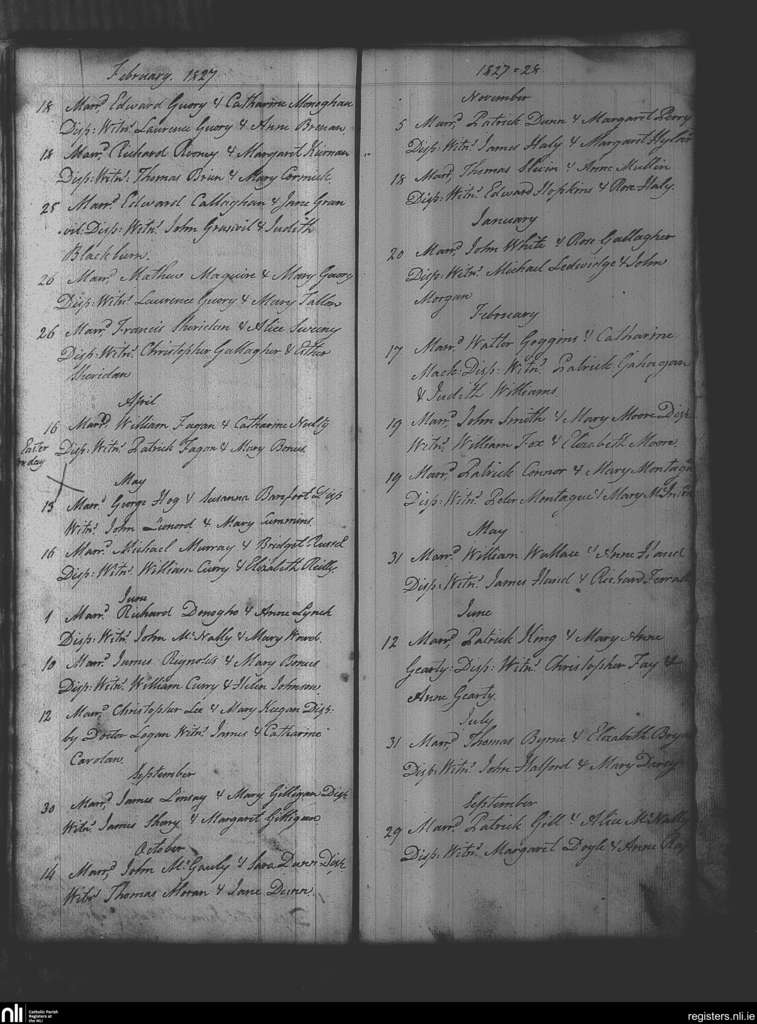 February. 1827
18 Marrd. Edward Guory & Catharine Monoghan
Disp: Witns. Laurence Guory & Anne Brenan
18 Marrd. Richard Rooney & Margaret Kiernan
Disp: Witns. Thomas Brien & Mary Cormick
25 Marrd. Edward Callaghan & Jane Gran
vil: Disp: Witns. John Granvil & Judith
Blackburn.
26 Marrd. Mathew Maguire & Mary Guory
Disp: Witns. Laurence Guory & Mary Tallon
26 Marrd. Francis Sheridan & Alice Sweeny
Disp: Witns. Christopher Gallagher & Esther
Sheridan
April
16 Marrd. William Fagan & Catharine
Easter
Disp: Witns. Patrick Fagan & Mary Bones
May
13 Marrd. George Hog & Susanna Barefoot Disp
Witns. John Leonord & Mary Cummins
16 Marrd. Michael Murray & Bridget Russel
Disp: Witns. William Curry & Elizabeth Reilly.
June
1 Marrd. Richard Donogho & Anne Lynch
Disp: Witns. John McNally & Mary Ward.
10 Marrd. James Reynolds & Mary Bones
Disp: Witns. William Curry & Helen Johnson.
12 Marrd. Christopher Lee & Mary Keegan Disp.
by Doctor Logan Witns. James & Catharine
Carolan.
September
30 Marrd. James & Mary Gilligan Disp.
Witns. James & Margaret Gilligan
October
14 Marrd. John McGauly & Sara Dunn Disp.
Witns. Thomas Moran & Jane Dunn.
1827 & 28
November
5 Marrd. Patrick Dunn & Margaret Perry
Disp: Witns. James Haly & Margaret
18 Marrd. Thomas Slevin & Anne Mullin
Disp: Witns. Edward Hopkins & Rose Haly.
January
20 Marrd. John White & Rose Gallagher
Disp: Witns. Michael Ledwidge & John
Morgan
February
17 Marrd. Walter Goggins & Catharine
Mack: Disp: Witns. Patrick Gahagan
& Judith Williams
19 Marrd. John Smith & Mary Moore Disp.
Witns. William Fox & Elizabeth Moore.
19 Marrd. Patrick Connor & Mary
Disp: Witns. Peter Montague & Mary
May
31 Marrd. William Wallace & Anne Hand
Disp: Witns. James Hand & Richard
June
12 Marrd. Patrick King & Mary Anne
Gearty: Disp: Witns. Christopher Fay &
Anne Gearty.
July
31 Marrd. Thomas Byrne & Elizabeth
Disp: Witns. John Halford & Mary Darcy
September
29 Marrd. Patrick Gill & Alice McNally
Disp: Witns. Margaret Doyle & Anne
nli
Catholic Parish
Registers at
the NLI
registers.nli.ie